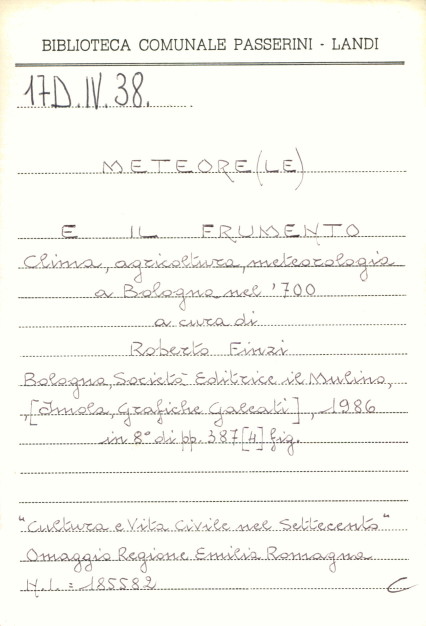 BIBLIOTECA COMUNALE PASSERINI - LANDI
17D.IV.38.
METEORE (LE)
E IL FRUMENTO
Clima, agricoltura, meteorologia
a Bologna nel '700
a cura di
Roberto Finzi
Bologna, Società Editrice il Mulino,
,[Imola, Grafiche Galeati], 1986
in 8° di pp. 387[4] fig.
"Cultura e Vita Civile nel Settecento"
Omaggio Regione Emilia Romagna
N.I. = 185582
C